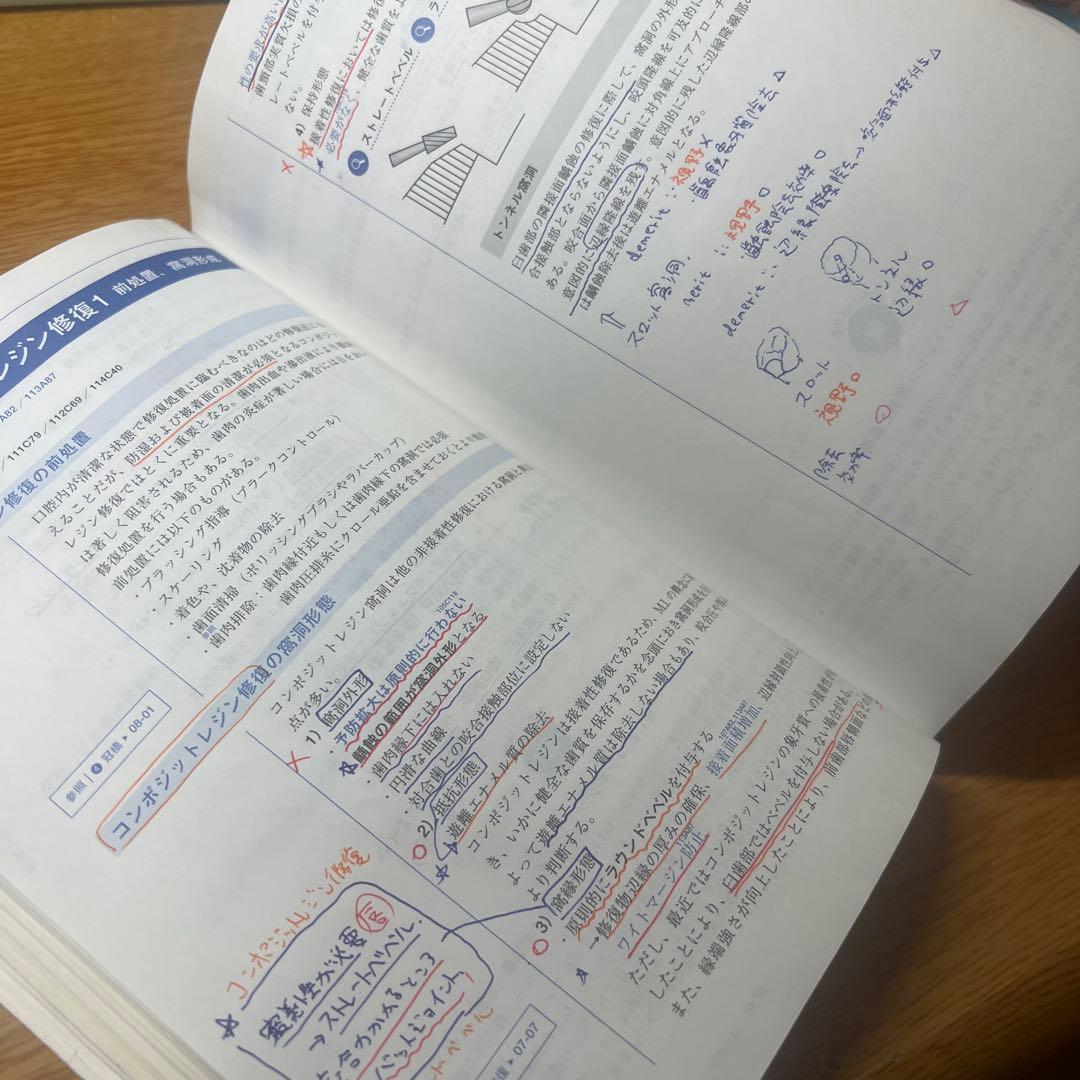 レジン修復1 前処置、窩洞形成
A82/113A87
/111C79/112C69/114C40
修復の前処置
口腔内が清潔な状態で修復処置に臨むべきなのはどの修復法にも
えることだが、防湿および被着面の清潔が必須となるコンポジ
レジン修復ではとくに重要となる。歯肉出血や滲出液により接着
は著しく阻害されるため、歯肉の炎症が著しい場合には
修復処置を行う場合もある。
前処置には以下のものがある。
・ブラッシング指導（プラークコントロール）
・スケーリング
・着色や、沈着物の除去
・歯面清掃（ポリッシングブラシやラバーカップ）
・歯肉排除：歯肉縁付近もしくは歯肉縁下の窩洞では必須
歯肉圧排糸にクロール亜鉛を含ませておくとより
参照 4 冠橋▶08-01
コンポジットレジン修復の窩洞形態
コンポジットレジン窩洞は他の非接着性修復における窩洞と
点が多い。
1）窩洞外形
・予防拡大は原則的に行わない 105C118
・齲蝕の範囲が窩洞外形となる
・歯肉縁下には入れない
・円滑な曲線
・対合歯との咬合接触部位に設定しない
2）抵抗形態
・遊離エナメル質の除去
コンポジットレジンは接着性修復であるため、MIの概念に
き、いかに健全な歯質を保存するかを念頭におき窩洞形成を
よって遊離エナメル質は除去しない場合もあり、咬合圧や
より判断する。
3）窩縁形態
・原則的にラウンドベベルを付与する
→修復物辺縁の厚みの確保、接着面積増加、辺縁封鎖性向上
ホワイトマージン防止
ただし、最近ではコンポジットレジンの象牙質への接着性
したことにより、臼歯部ではベベルを付与しない場合がある。
また、縁端強さが向上したことにより、前歯部唇側面など
コンポジットレジン修復
審美性が必要
→ストレートベベル
バットジョイント
▶07-07
性の要求が高い
歯頸部実質欠損の
レートベベルを付
ない。
4）保持形態
接着性修復においては修復
必要がなく、健全な歯質を
ストレートベベル
トンネル窩洞
臼歯部の隣接面齲蝕の修復に際して、窩洞の外形
合接触部とならないようにし、咬頭隆線を可及的に
ある。咬合面から隣接面齲蝕に対角線上にアプローチ
意図的に辺縁隆線を残す。意図的に残した辺縁隆線部の
は齲蝕除去後は遊離エナメルとなる。
demerit：視野×
齲蝕象牙質除去△
⇑
スロット窩洞、
merit：視野○
齲蝕除去効率○
demerit：辺縁隆線除去→窩洞形態付与△
トンネル
辺縁○
スロット
視野○
除去
効率